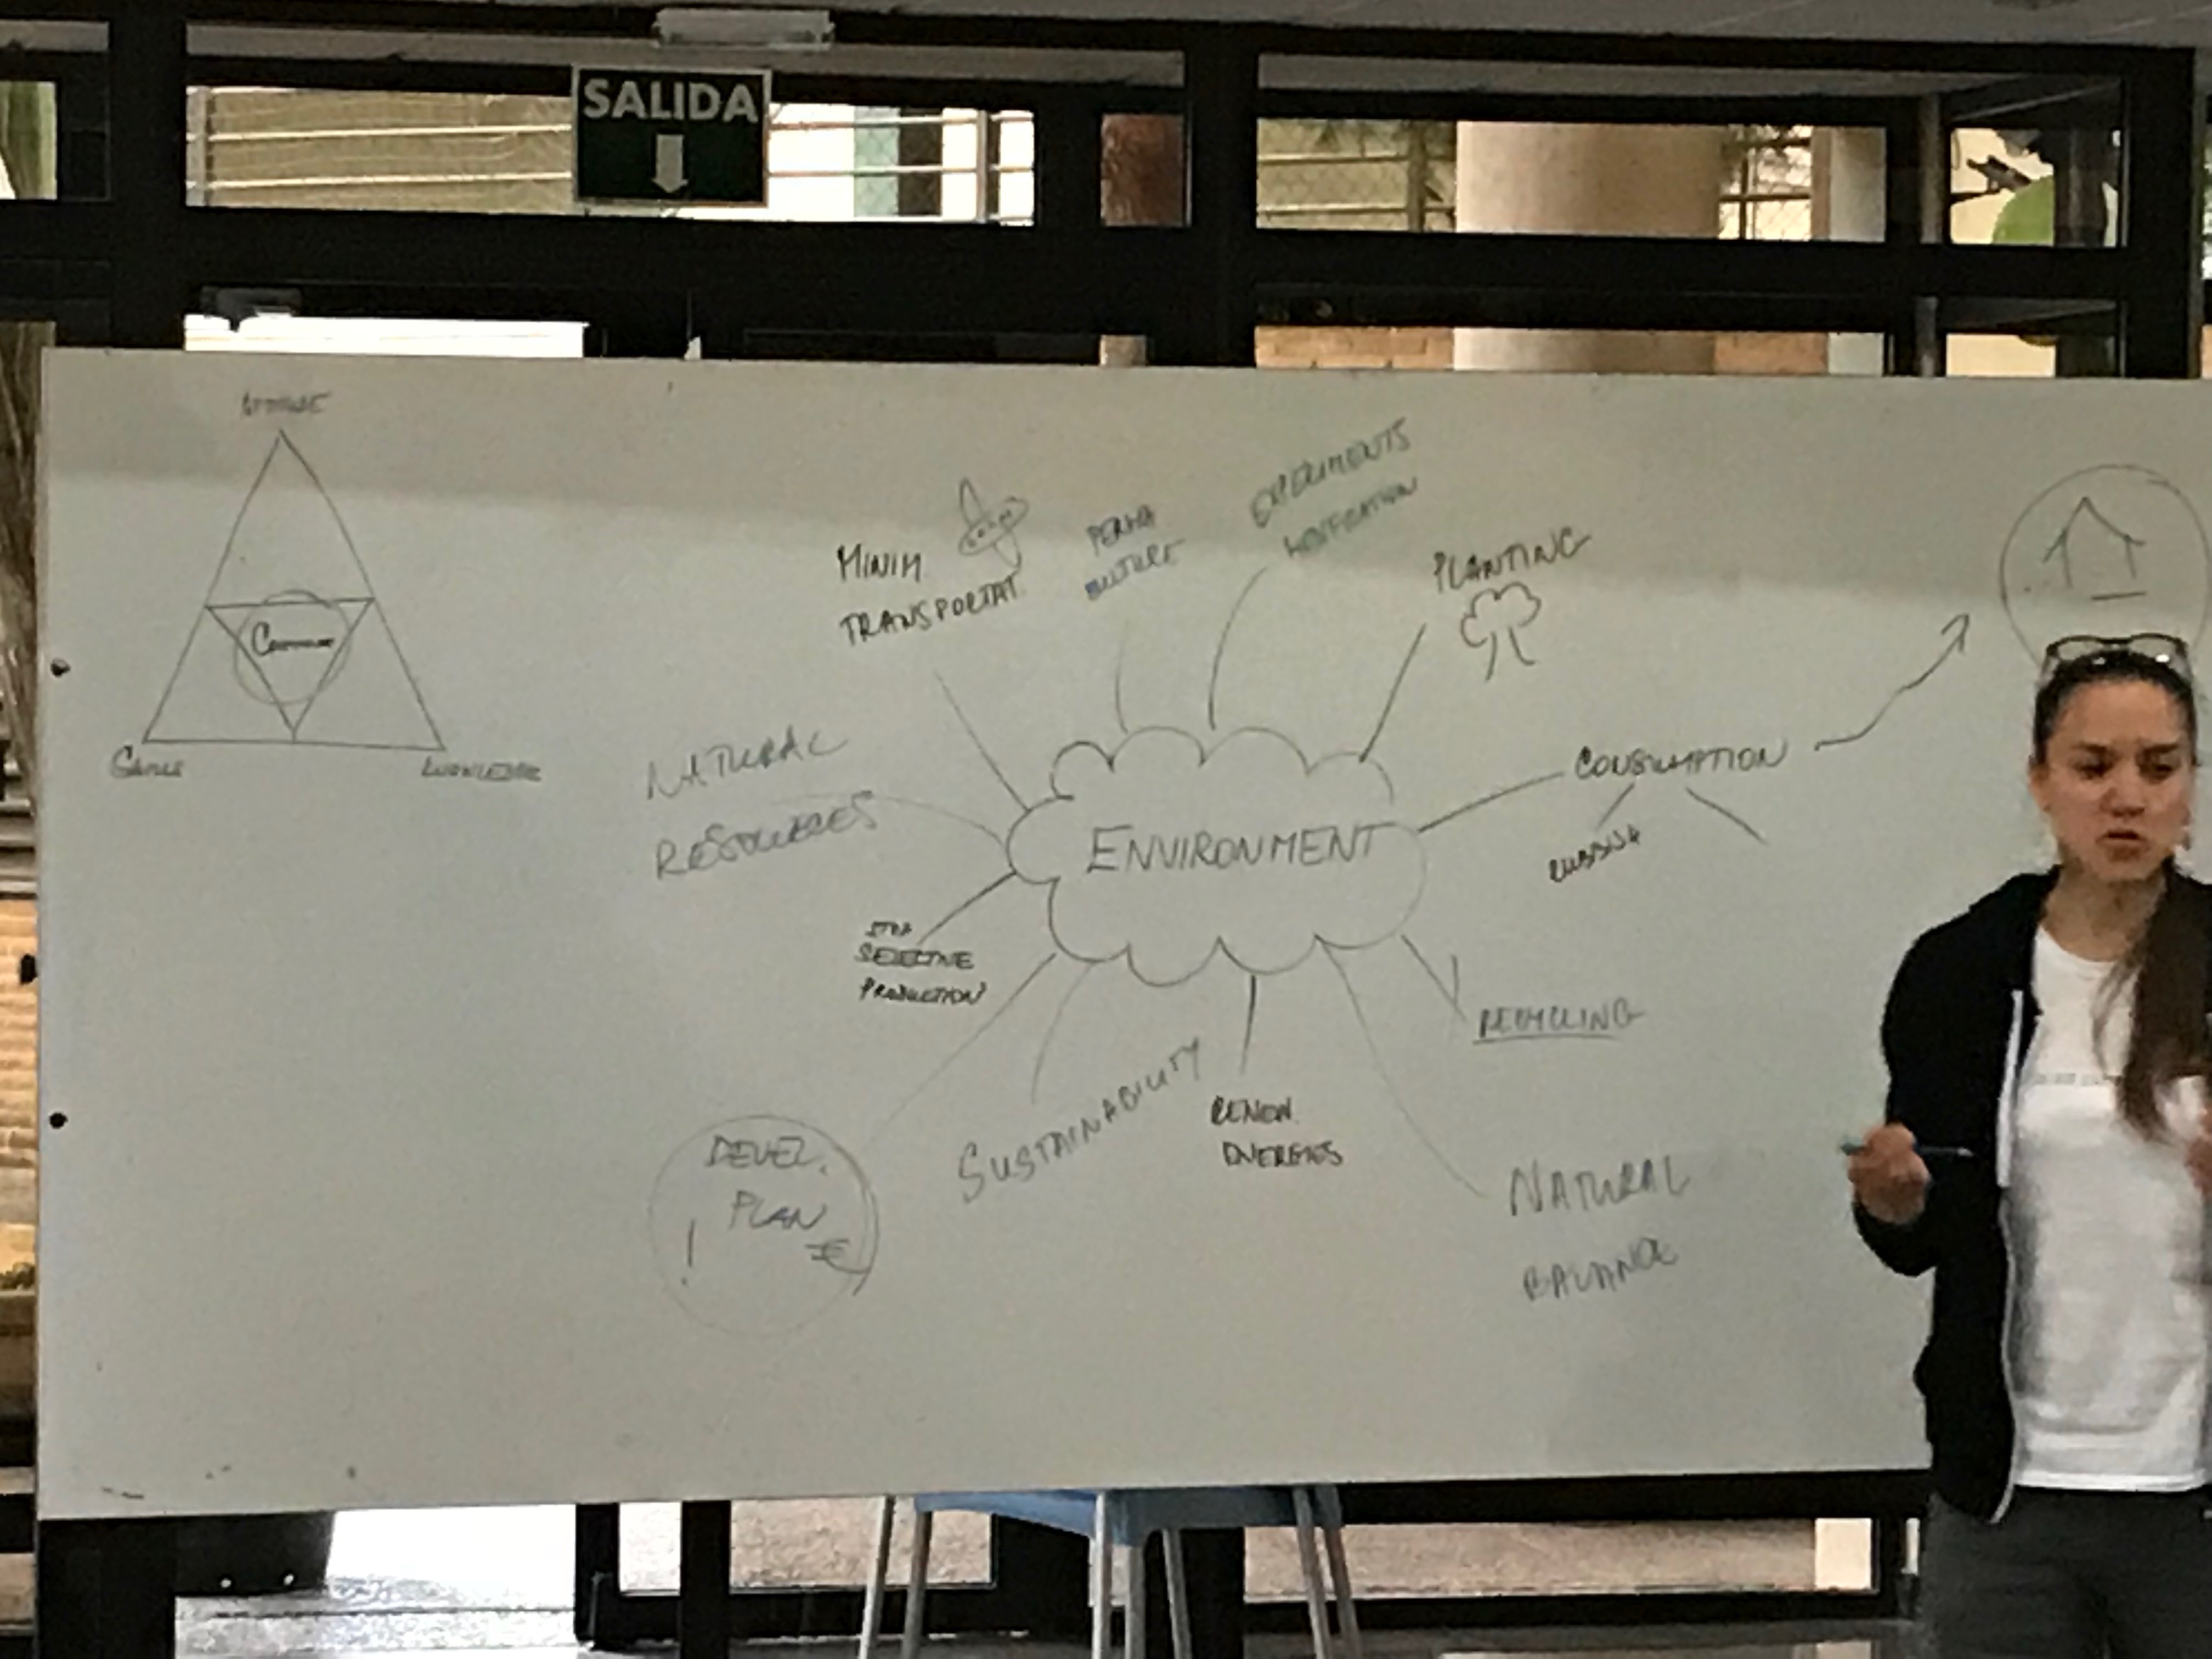 SALIDA
ATTITUDE
SKILLS
KNOWLEDGE
MINIM.
TRANSPORTAT.
PERMA
CULTURE
EXPERIMENTS
PLANTING
NATURAL
RESOURCES
ENVIRONMENT
CONSUMPTION
STOP
SELECTIVE
PRODUCTION
RECYCLING
DEVEL.
PLAN
! €
SUSTAINABILITY
RENEW.
ENERGIES
NATURAL
BALANCE